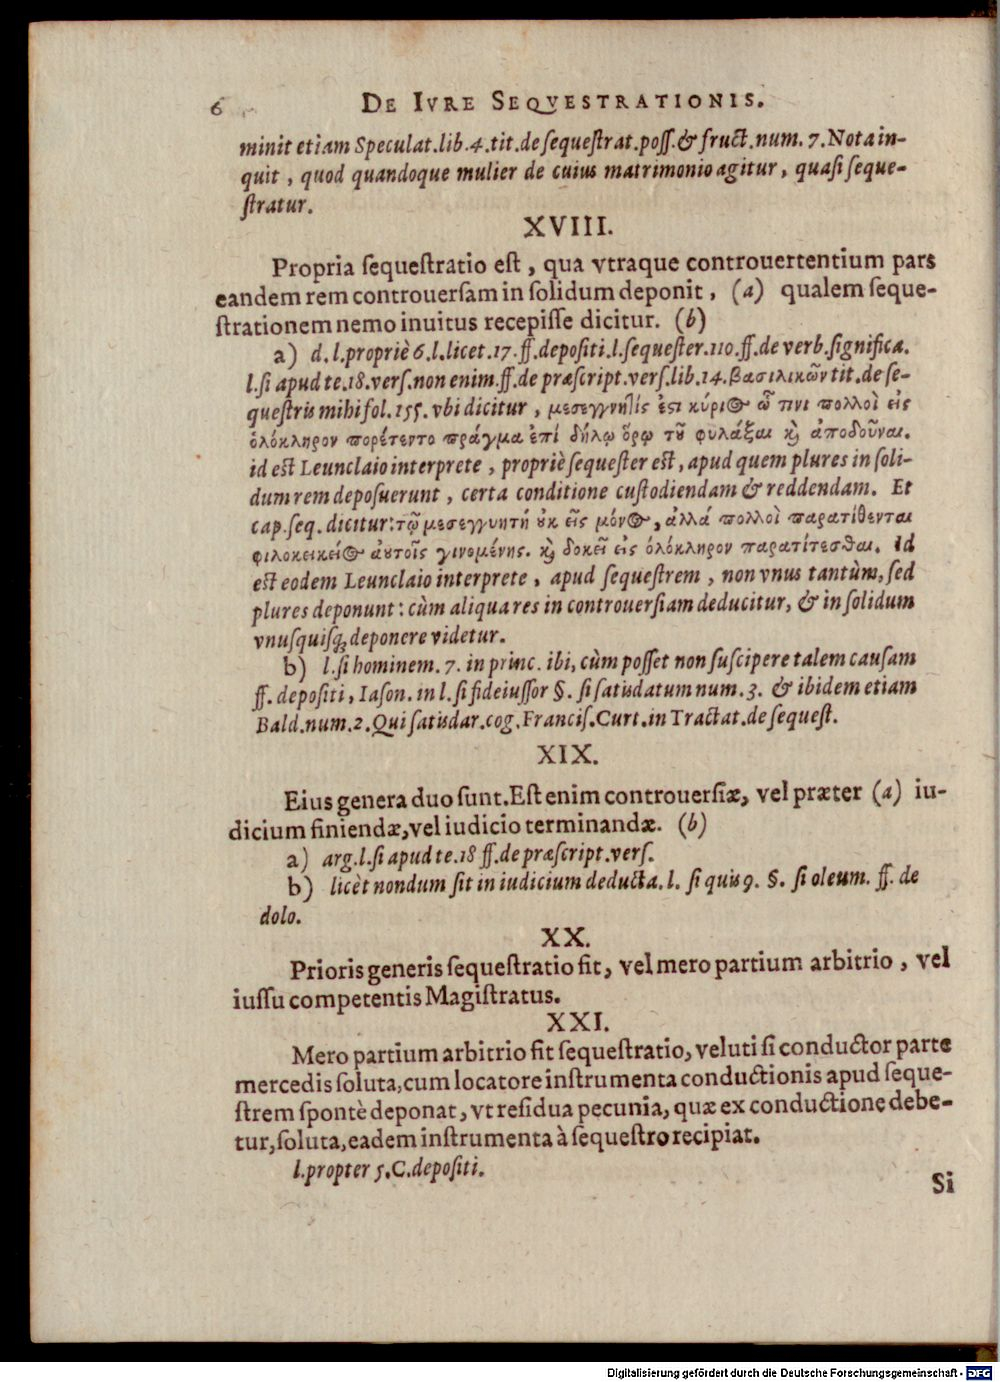 6 DE IVRE SEQVESTRATIONIS.
minit etiam Speculat. lib. 4. tit. de ſequeſtrat. poſſ. & fruct. num. 7. Nota in-
quit, quod quandoque mulier de cuius matrimonio agitur, quaſi ſeque-
ſtratur.
XVIII.
Propria ſequeſtratio est, qua vtraque controuertentium pars
eandem rem controuerſam in ſolidum deponit, (a) qualem ſeque-
ſtrationem nemo inuitus recepiſſe dicitur. (b)
a) d. l. propriè 6. l. licet. 17. ff. depoſiti. l. ſequeſter. 110. ff. de verb. ſignifica.
l. ſi apud te. 18. verſ. non enim. ff. de præſcript. verſ. lib. 14. βασιλικῶν tit. de ſe-
queſtris mihi fol. 155. vbi dicitur, μεσεγγυητὶς ἐστι κύριος ᾧ τινι πολλοὶ εἰς
ὁλόκληρον πορέτεντο πράγμα ἐπί δήλῳ ὅρῳ τοῦ φυλάξαι καὶ ἀποδοῦναι.
id est Leunclaio interprete, propriè ſequeſter est, apud quem plures in ſoli-
dum rem depoſuerunt, certa conditione cuſtodiendam & reddendam. Et
cap. ſeq. dicitur: τῷ μεσεγγυητῇ οὐκ εἷς μόνος, ἀλλά πολλοὶ παρατίθενται
φιλοκεικείος αὐτοῖς γινομένης. καὶ δοκεῖ εἰς ὁλόκληρον παρατίτεσθαι. Id
est eodem Leunclaio interprete, apud ſequeſtrem, non vnus tantùm, ſed
plures deponunt: cùm aliqua res in controuerſiam deducitur, & in ſolidum
vnuſquiſq; deponere videtur.
b) l. ſi hominem. 7. in princ. ibi, cùm poſſet non ſuſcipere talem cauſam
ff. depoſiti, Iaſon. in l. ſi fideiuſſor §. ſi ſatisdatum num. 3. & ibidem etiam
Bald. num. 2. Qui ſatisdar. cog. Franciſ. Curt. in Tractat. de ſequeſt.
XIX.
Eius genera duo ſunt. Est enim controuerſiæ, vel præter (a) iu-
dicium finiendæ, vel iudicio terminandæ. (b)
a) arg. l. ſi apud te. 18 ff. de præſcript. verſ.
b) licèt nondum ſit in iudicium deducta. l. ſi quis 9. §. ſi oleum. ff. de
dolo.
XX.
Prioris generis ſequeſtratio fit, vel mero partium arbitrio, vel
iuſſu competentis Magiſtratus.
XXI.
Mero partium arbitrio fit ſequeſtratio, veluti ſi conductor parte
mercedis ſoluta, cum locatore inſtrumenta conductionis apud ſeque-
ſtrem ſpontè deponat, vt reſidua pecunia, quæ ex conductione debe-
tur, ſoluta, eadem inſtrumenta à ſequeſtro recipiat.
l. propter 5. C. depoſiti.
Si
Digitalisierung gefördert durch die Deutsche Forschungsgemeinschaft - DFG